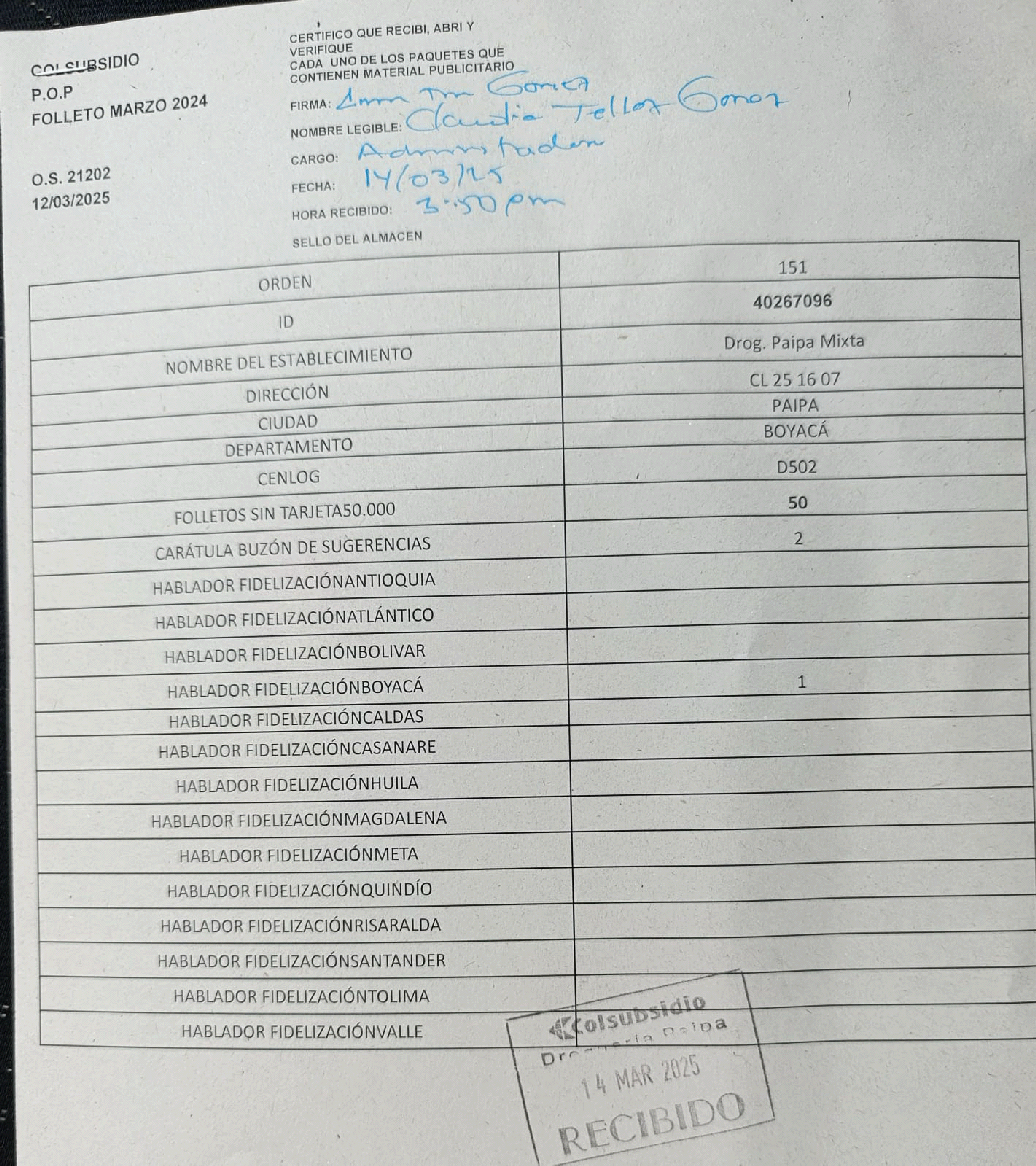 COLSUBSIDIO
P.O.P
FOLLETO MARZO 2024
O.S. 21202
12/03/2025
CERTIFICO QUE RECIBI, ABRI Y
VERIFIQUE
CADA UNO DE LOS PAQUETES QUE
CONTIENEN MATERIAL PUBLICITARIO
FIRMA:
NOMBRE LEGIBLE: Claudia Tellez Gomez
CARGO: Administrador
FECHA: 14/03/25
HORA RECIBIDO: 3:50 pm
SELLO DEL ALMACEN
ORDEN 151
ID 40267096
NOMBRE DEL ESTABLECIMIENTO Drog. Paipa Mixta
DIRECCIÓN CL 25 16 07
CIUDAD PAIPA
DEPARTAMENTO BOYACÁ
CENLOG D502
FOLLETOS SIN TARJETA50.000 50
CARÁTULA BUZÓN DE SUGERENCIAS 2
HABLADOR FIDELIZACIÓNANTIOQUIA
HABLADOR FIDELIZACIÓNATLÁNTICO
HABLADOR FIDELIZACIÓNBOLIVAR
HABLADOR FIDELIZACIÓNBOYACÁ 1
HABLADOR FIDELIZACIÓNCALDAS
HABLADOR FIDELIZACIÓNCASANARE
HABLADOR FIDELIZACIÓNHUILA
HABLADOR FIDELIZACIÓNMAGDALENA
HABLADOR FIDELIZACIÓNMETA
HABLADOR FIDELIZACIÓNQUINDÍO
HABLADOR FIDELIZACIÓNRISARALDA
HABLADOR FIDELIZACIÓNSANTANDER
HABLADOR FIDELIZACIÓNTOLIMA
HABLADOR FIDELIZACIÓNVALLE
Colsubsidio
Droguería Paipa
14 MAR 2025
RECIBIDO